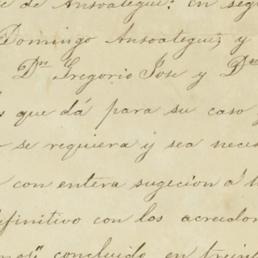 de Ansoategui: en seg
Domingo Ansoategui; y
Dn Gregorio Jose y Dn
que dá para su caso
se requiera y sea neces
con entera sugecion á
definitivo con los acreedo
concluido en treint